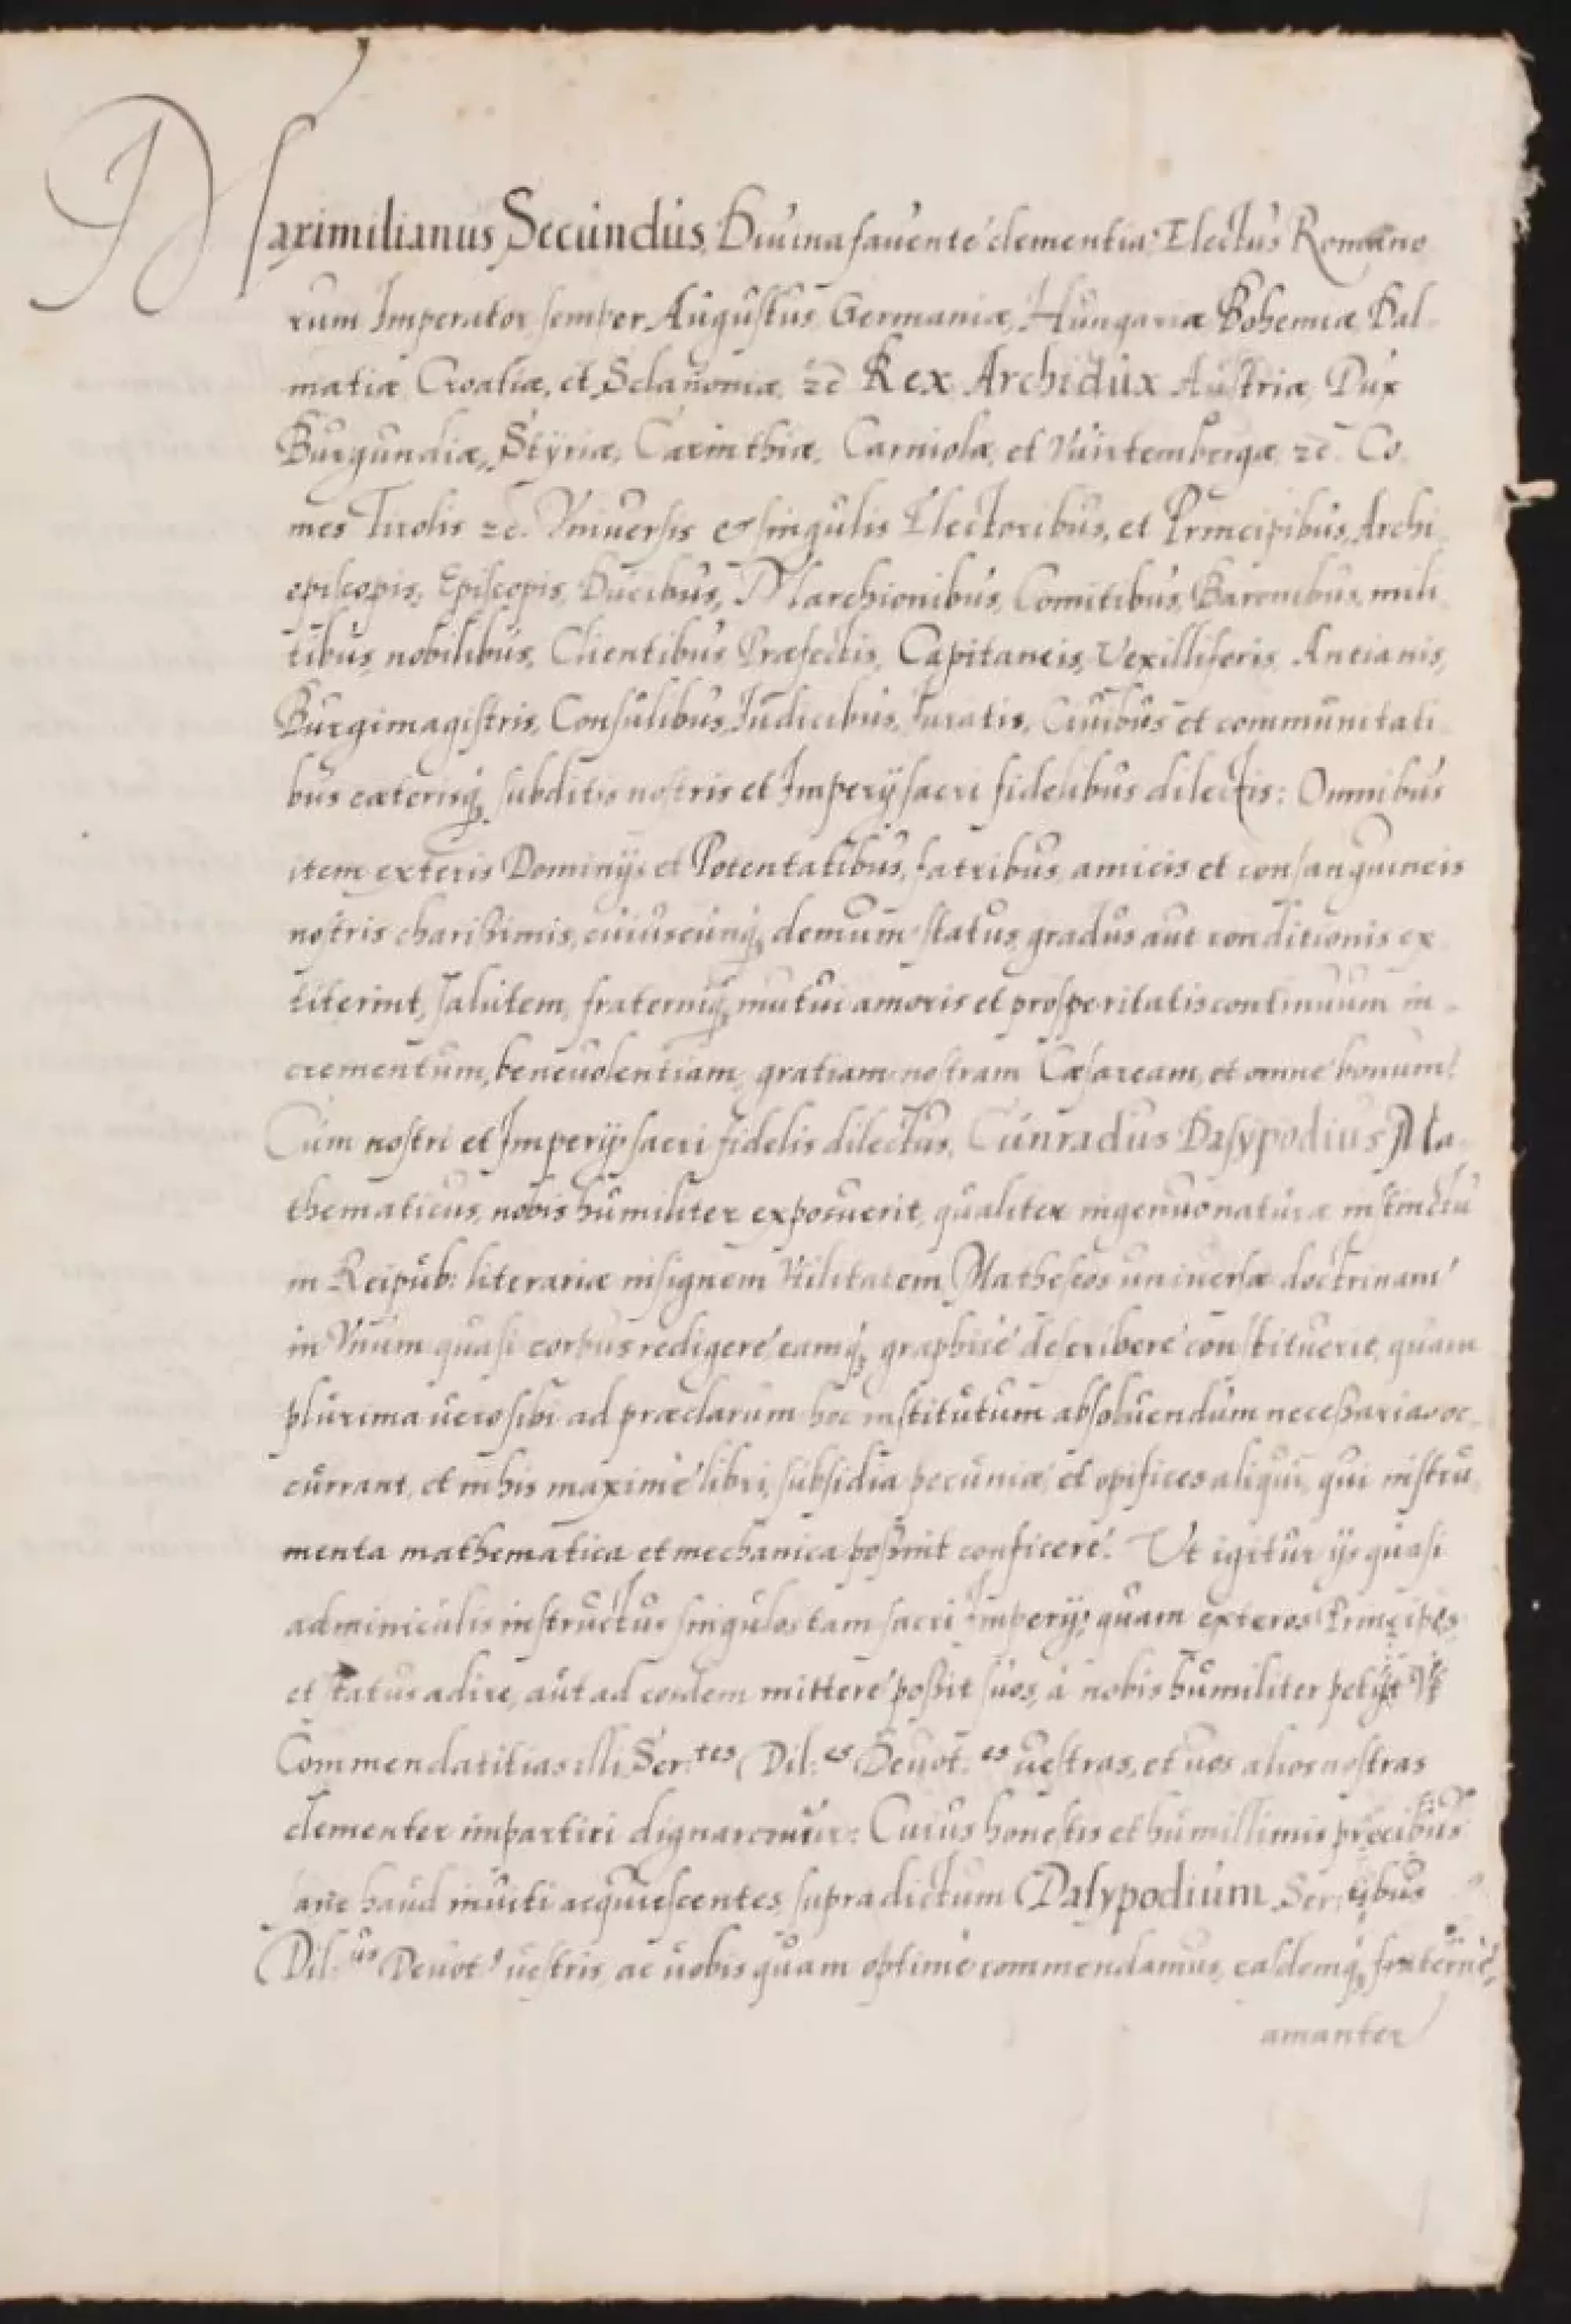 Maximilianus Secundus, Diuina fauente clementia Electus Romano
rum Imperator semper Augustus, Germaniæ, Hungariæ Bohemiæ, Dal-
matiæ Croatiæ, et Sclauoniæ, zc̄ Rex Archidux Austriæ, Dux
Burgundiæ, Styriæ, Carinthiæ, Carniolæ, et Wirtembergæ, zc̄. Co-
mes Tirolis zc̄. Vniuersis & singulis Electoribus, et Principibus, Archi
episcopis, Episcopis, Ducibus, Marchionibus, Comitibus, Baronibus, mili
tibus, nobilibus, Clientibus Præfectis, Capitaneis, Vexilliferis, Antianis,
Burgimagistris, Consulibus, Iudicibus, Iuratis, Ciuibus et communitati
bus cæterisq; subditis nostris et Imperij sacri fidelibus dilectis: Omnibus
item exteris Dominijs et Potentatibus, fratribus, amicis et consanguineis
nostris charißimis, cuiuscunq; demum status, gradus aut conditionis ex
titerint, salutem, fraterniq; mutui amoris et prosperitatis continuum in-
crementum, beneuolentiam, gratiam nostram Cæsaream, et omne bonum!
Cum nostri et Imperij sacri fidelis dilectus, Cunradus Dasypodius Ma-
thematicus, nobis humiliter exposuerit, qualiter ingenuo naturæ instinctu
in Reipub: literariæ insignem Vtilitatem, Matheseos uniuersæ doctrinam
in Vnum quasi corpus redigere eamq; graphicè describere constituerit, quam
plurima uero sibi ad præclarum hoc institutum absoluendum neceßaria oc-
currant, et in his maximè libri, subsidia pecuniæ, et opifices aliqui, qui instru-
menta mathematica et mechanica poßint conficere. Ut igitur ijs quasi
adminiculis instructus singulos tam sacri Imperij, quam exteros Principes
et status adire, aut ad eosdem mittere poßit suos, à nobis humiliter petijt
Commendatitias illi Ser:tes Dil:es Deuot:es uestras, et uos alios nostras
clementer impartiri dignaremur: Cuius honestis et humillimis precibus
sane haud inuiti acquiescentes, supradictum Dasypodium Ser:tibus
Dil:us Deuot: uestris, ac uobis quam optimè commendamus, easdemq; fraternè,
amanter